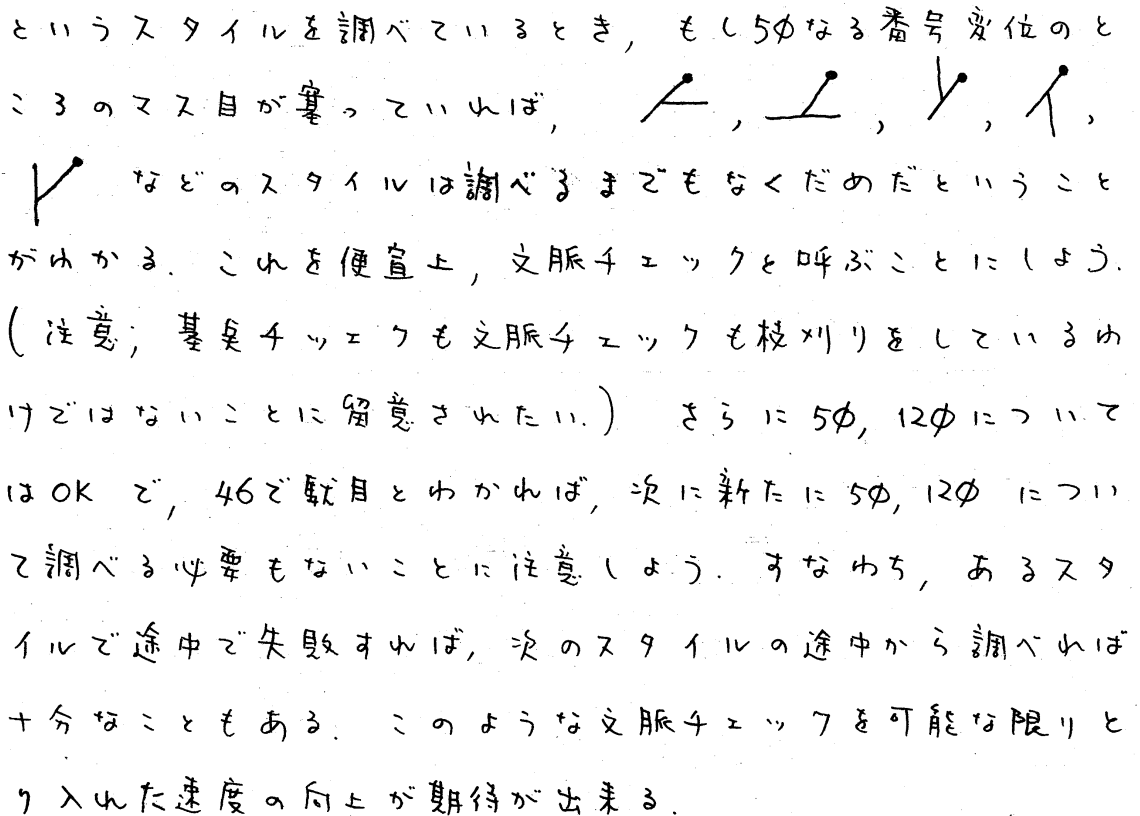 というスタイルを調べているとき, もし5φなる番号変位のと
ころのマス目が塞っていれば, , , , ,
などのスタイルは調べるまでもなくだめだということ
がわかる. これを便宜上, 文脈チェックと呼ぶことにしよう.
(注意; 基点チッェクも文脈チェックも枝刈りをしているわ
けではないことに留意されたい.) さらに5φ, 12φについて
はOKで, 46で駄目とわかれば, 次に新たに5φ, 12φについ
て調べる必要もないことに注意しよう. すなわち, あるスタ
イルで途中で失敗すれば, 次のスタイルの途中から調べれば
十分なこともある. このような文脈チェックを可能な限りと
り入れた速度の向上が期待が出来る.